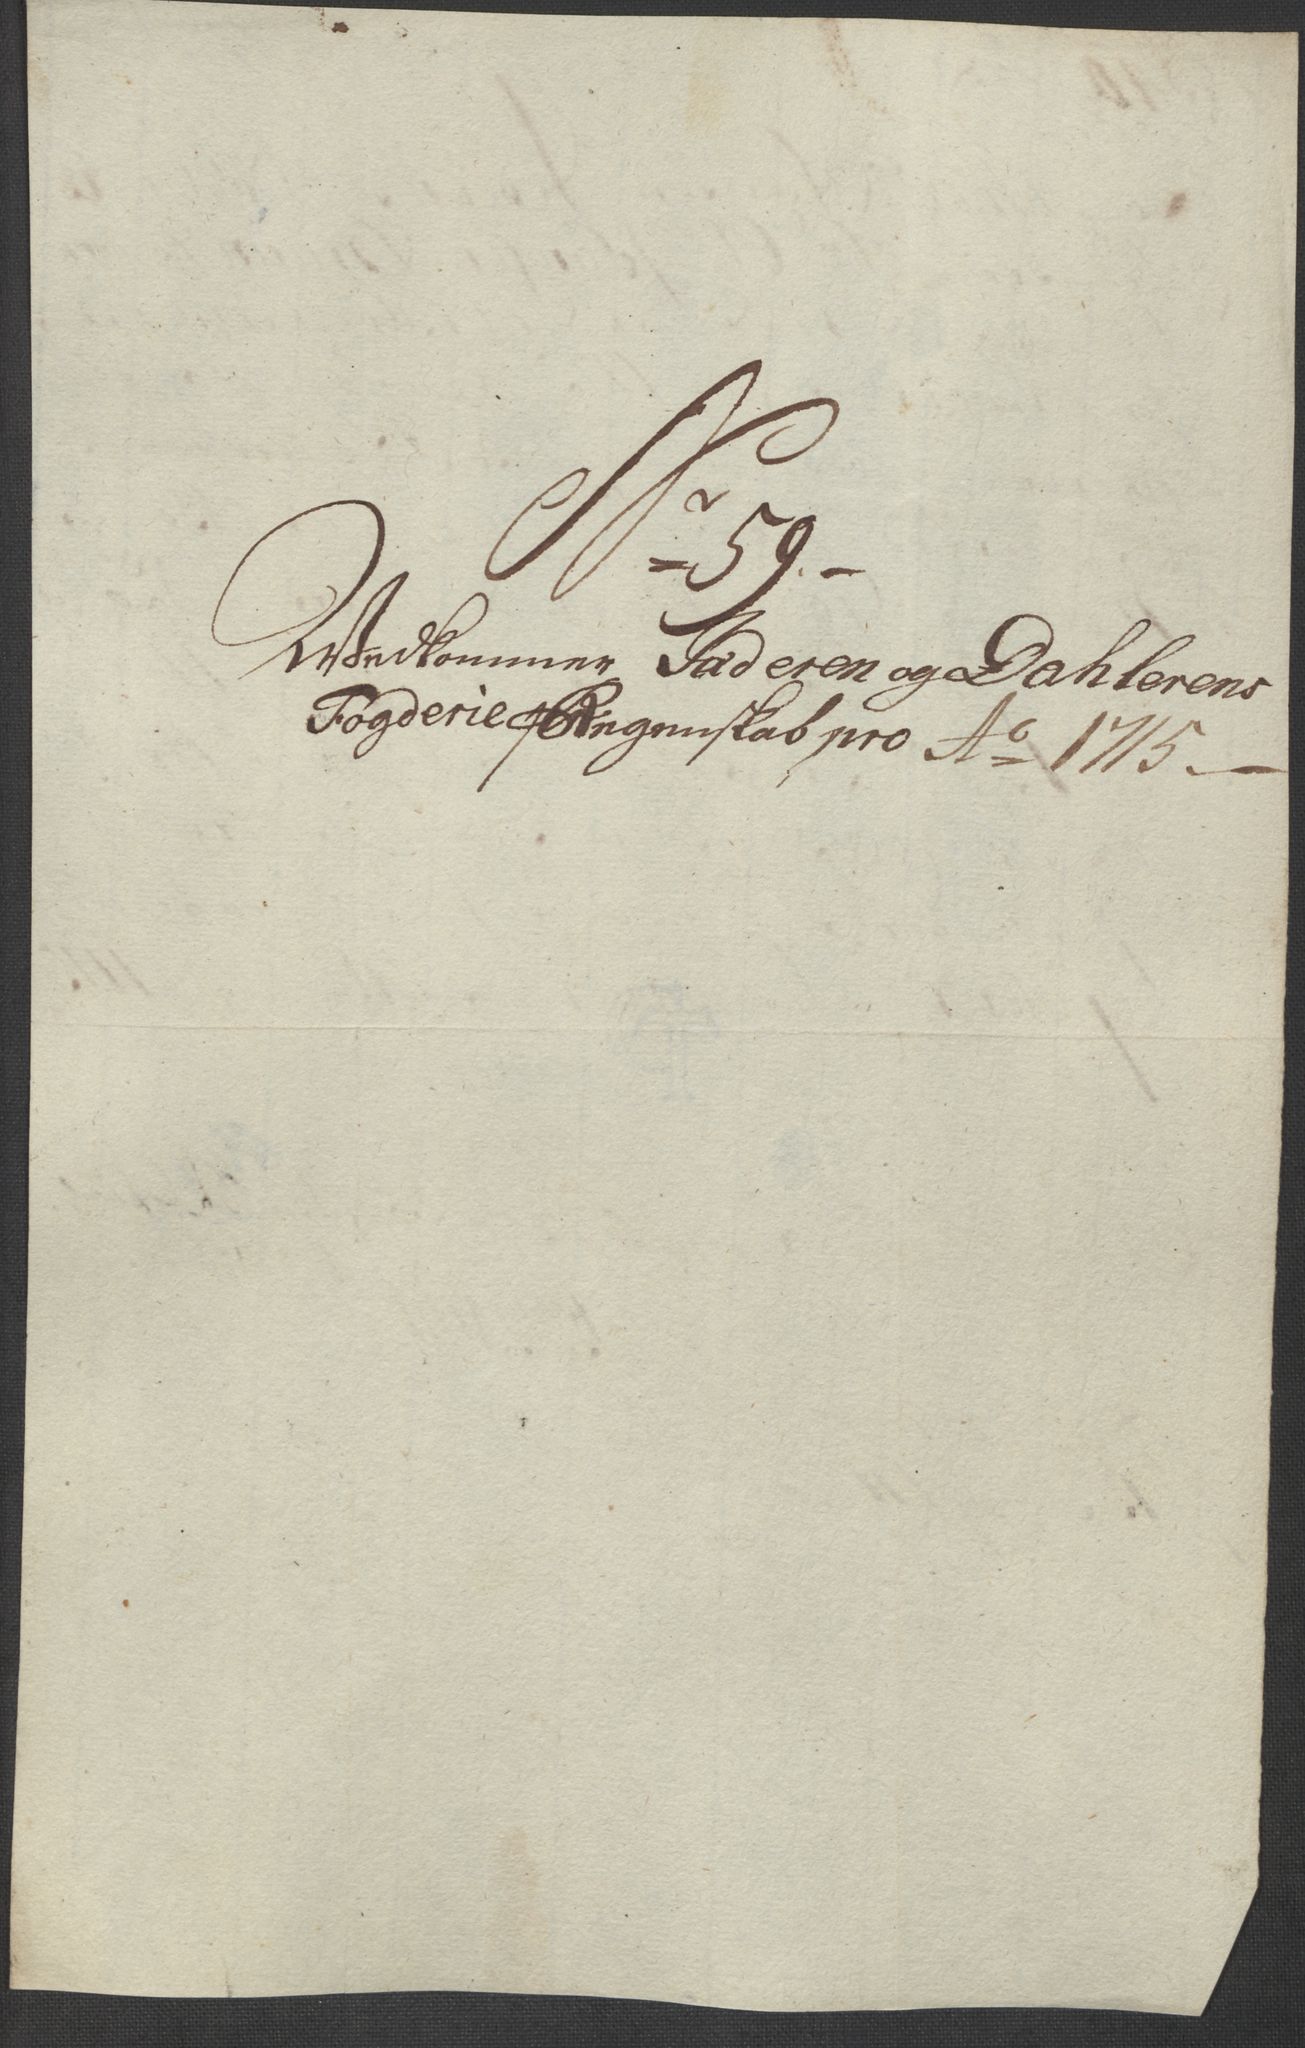 Nr 59.
Vedkommer Jæderen og Dahlerens
Fogderie Regenskab pro Ao 1715.